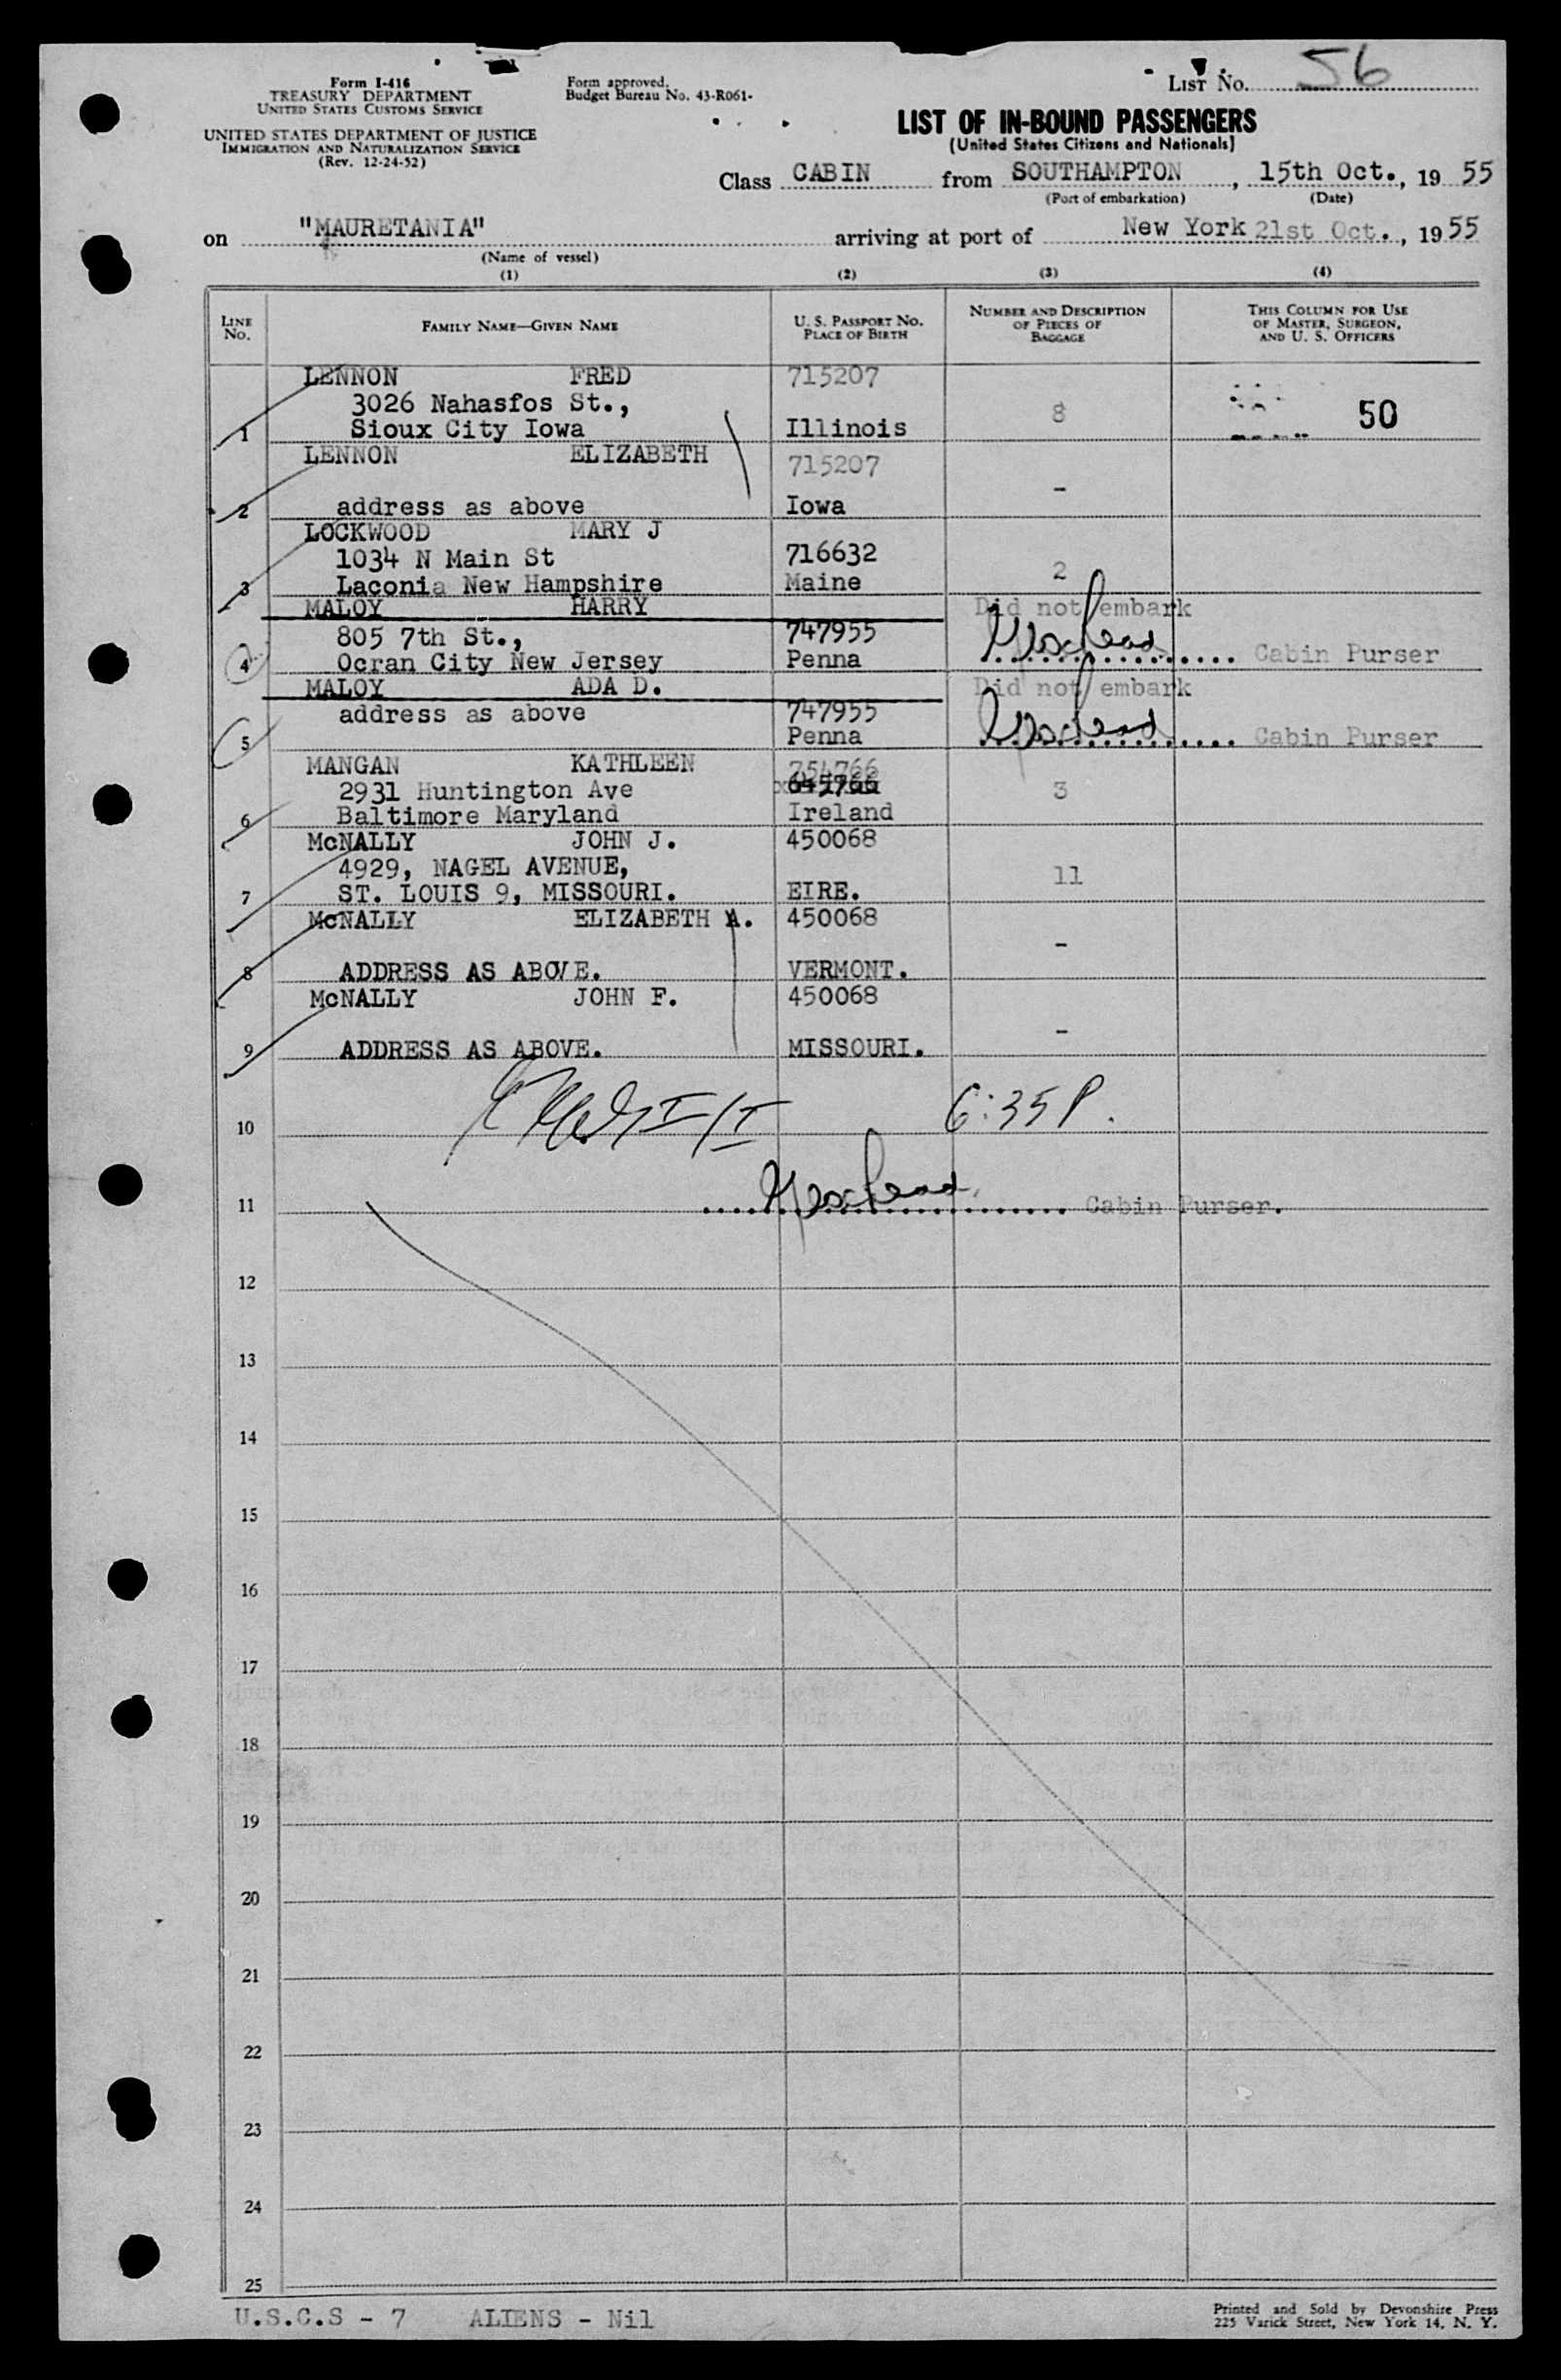 Form I-416
TREASURY DEPARTMENT
UNITED STATES CUSTOMS SERVICE
UNITED STATES DEPARTMENT OF JUSTICE
IMMIGRATION AND NATURALIZATION SERVICE
(Rev. 12-24-52)
Form approved.
Budget Bureau No. 43-R061-
LIST NO. 56
LIST OF IN-BOUND PASSENGERS
(United States Citizens and Nationals)
Class CABIN from SOUTHAMPTON, 15th Oct., 19 55
(Port of embarkation) (Date)
on "MAURETANIA" arriving at port of New York 21st Oct., 19 55
(Name of vessel)
(1) (2) (3) (4)
LINE NO.
FAMILY NAME—GIVEN NAME
U. S. PASSPORT NO.
PLACE OF BIRTH
NUMBER AND DESCRIPTION
OF PIECES OF
BAGGAGE
THIS COLUMN FOR USE
OF MASTER, SURGEON,
AND U. S. OFFICERS
LENNON FRED 715207
3026 Nahasfos St., 8 50
1 Sioux City Iowa Illinois
LENNON ELIZABETH 715207
-
2 address as above Iowa
LOCKWOOD MARY J
1034 N Main St 716632 2
3 Laconia New Hampshire Maine
MALOY HARRY Did not embark
805 7th St., 747955
4 Ocran City New Jersey Penna Cabin Purser
MALOY ADA D. Did not embark
address as above 747955
5 Penna Cabin Purser
MANGAN KATHLEEN 754766
2931 Huntington Ave 3
6 Baltimore Maryland Ireland
McNALLY JOHN J. 450068
4929, NAGEL AVENUE, 11
7 ST. LOUIS 9, MISSOURI. EIRE.
McNALLY ELIZABETH A. 450068
-
8 ADDRESS AS ABOVE. VERMONT.
McNALLY JOHN F. 450068
-
9 ADDRESS AS ABOVE. MISSOURI.
10 6:35 P.
11 Cabin Purser.
12
13
14
15
16
17
18
19
20
21
22
23
24
25
U.S.C.S - 7 ALIENS - Nil
Printed and Sold by Devonshire Press
225 Varick Street, New York 14, N. Y.